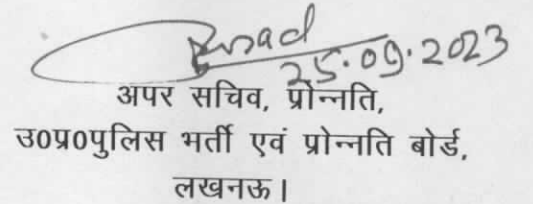 25.09.2023
अपर सचिव, प्रोन्नति,
उ०प्र०पुलिस भर्ती एवं प्रोन्नति बोर्ड,
लखनऊ।